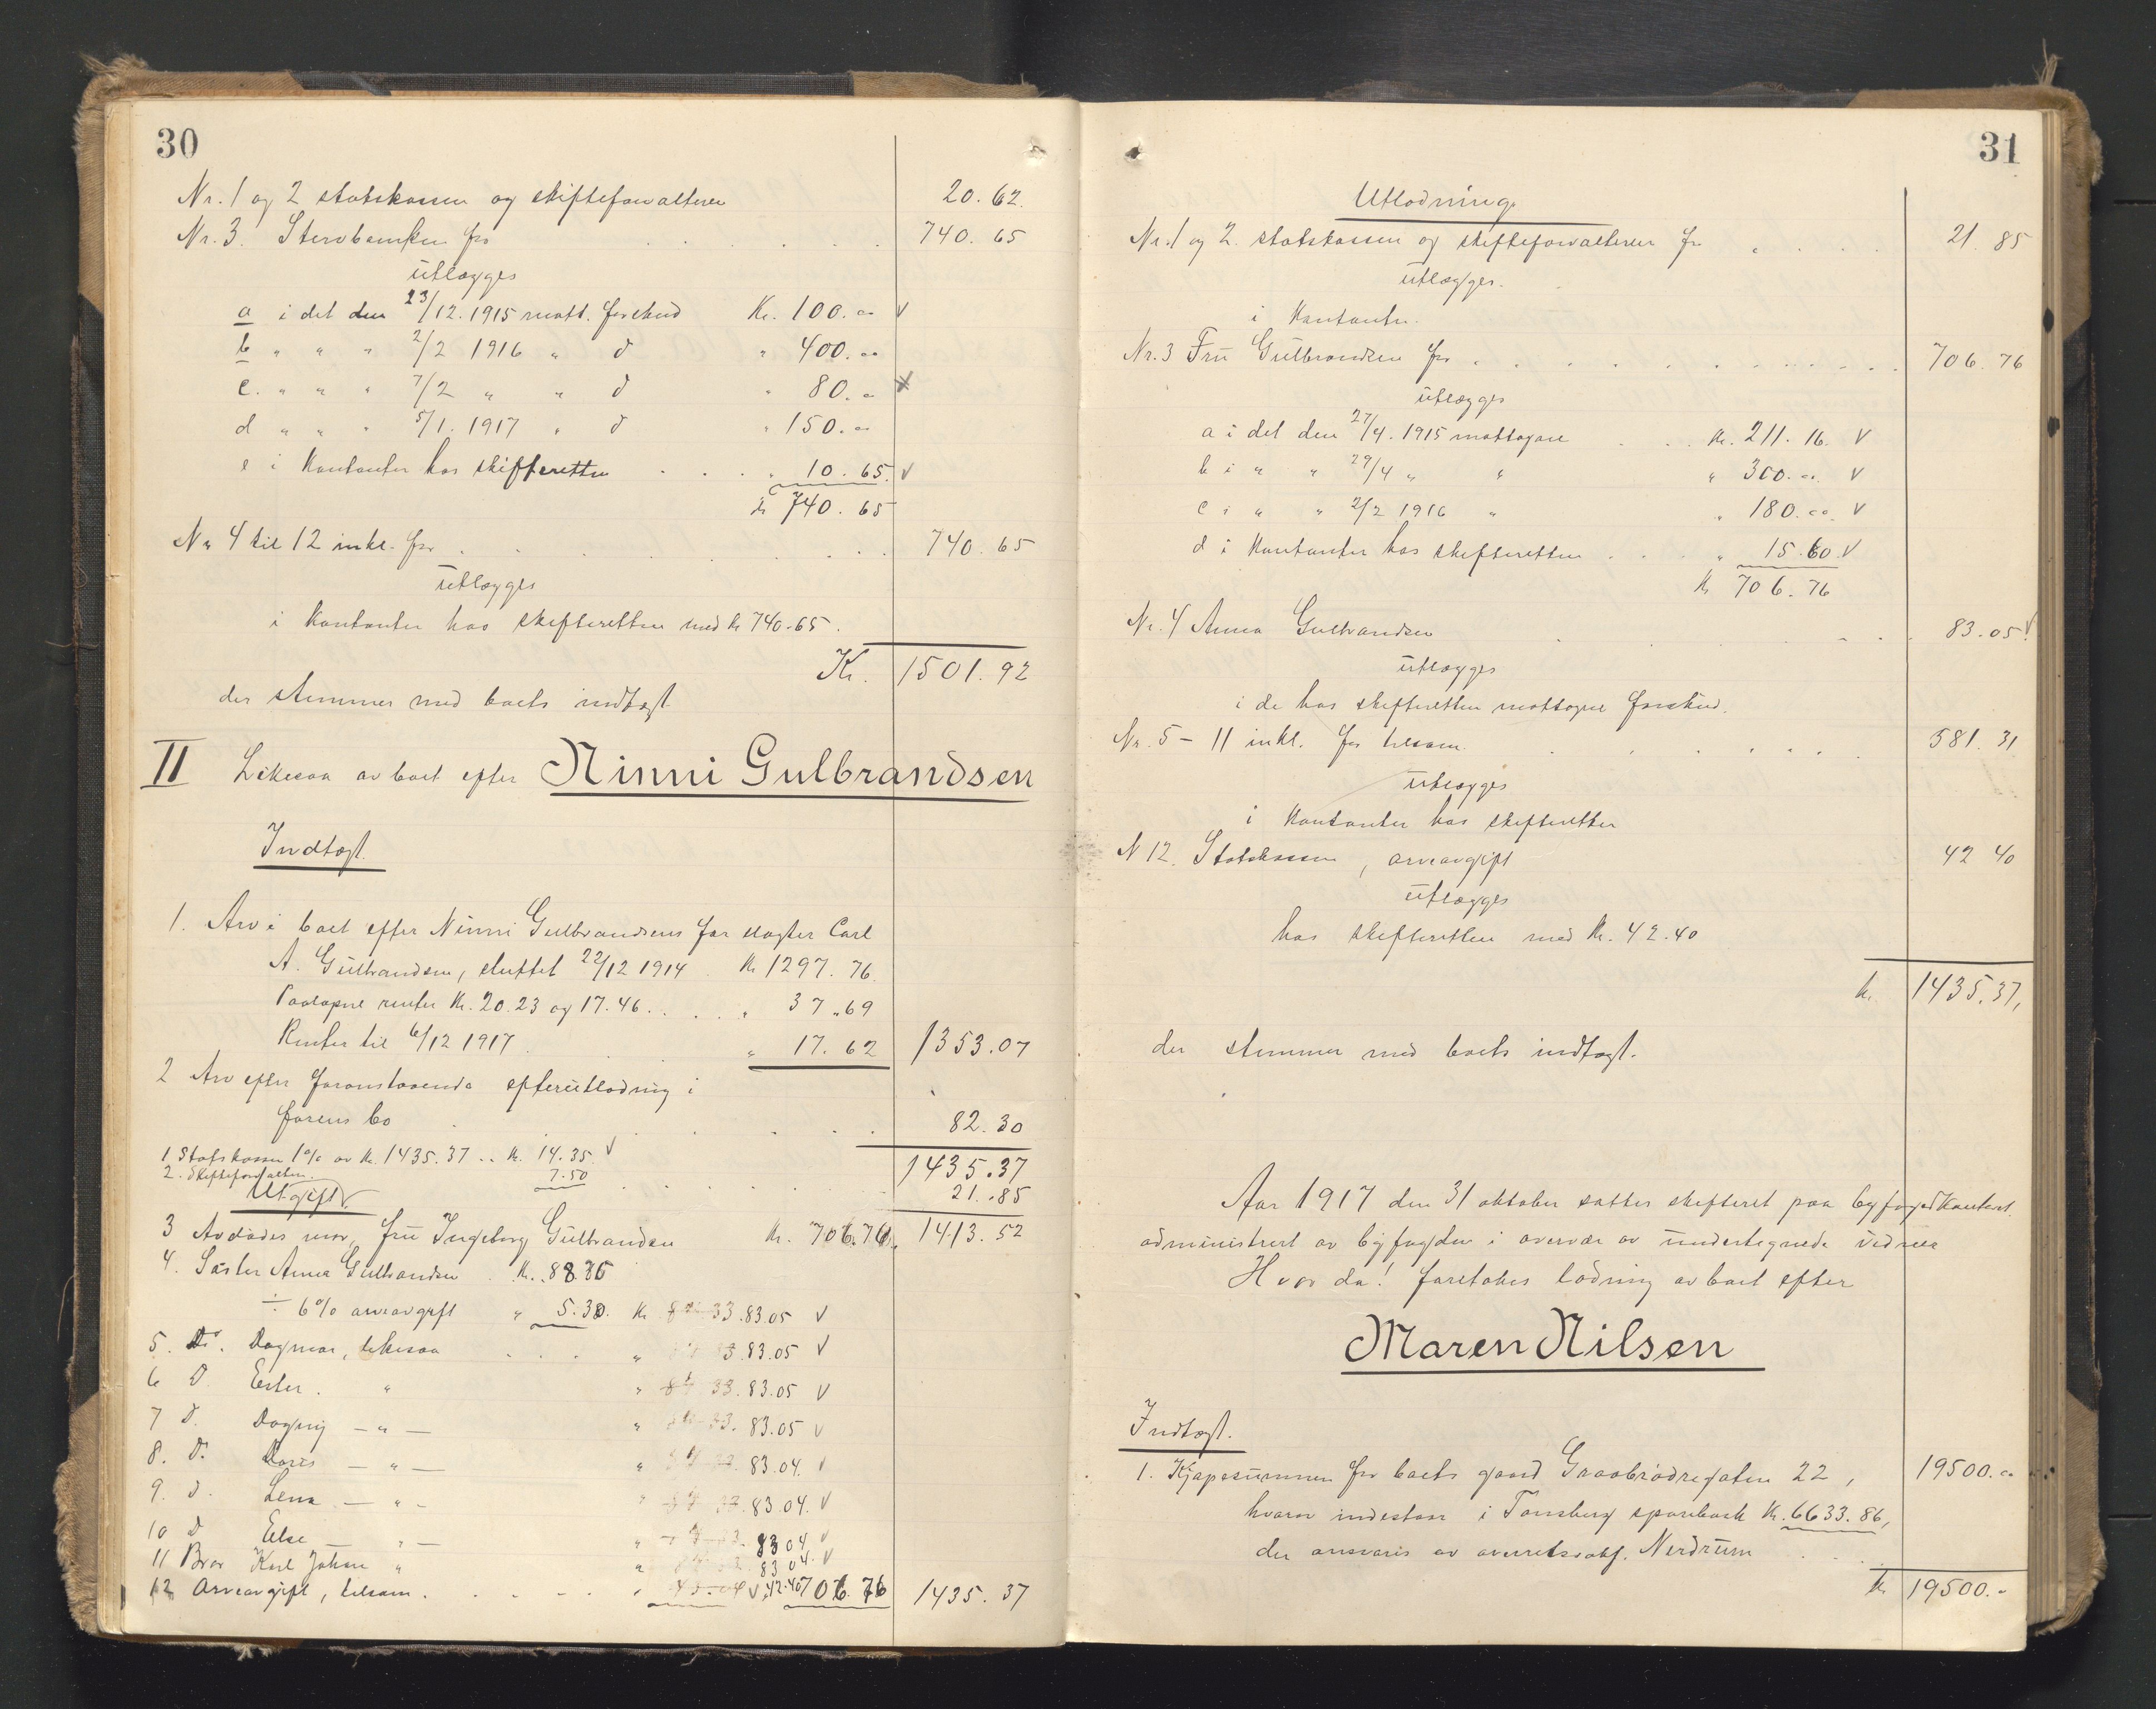 30
Nr. 1 og 2 statskassen og skifteforvalteren 20.62.
Nr. 3. Stervbanken for . . . . . . 740.65
utlægges
a i det den 23/12.1915 mott. forskud Kr. 100.00 v
b " " " 2/2 1916 " d " 400.00
c. " " " 7/2 " " d " 80.00
d " " " 5/1. 1917 " d " 150.00
e i Kontanter hos skifteretten . . . " 10.65. v
kr 740.65
Nr 4 til 12 inkl. for . . . . . . 740.65
utlægges
i Kontanter hos skifteretten med kr 740.65.
Kr. 1501.92
der stemmer med boets indtægt.
II Likesaa av boet efter Ninni Gulbrandsen
Indtægt.
1. Arv i boet efter Ninni Gulbrandsens far slagter Carl
A. Gulbrandsen, sluttet 22/12 1914 . Kr 1297.76
Paaløpne renter Kr. 20.23 og 17.46 . . . . " 37.69
Renter til 6/12 1917 . . . " 17.62 1353.07
2 Arv efter foranstaaende efterutlodning i
farens bo . . . . . . 82.30
1 Statskassen 1% av Kr. 1435.37 .. Kr. 14.35. v 1435.37
2. Skifteforvalteren. 7.50 . . . . . . 21.85
Utgift
3 Avdødes mor, fru Ingeborg Gulbrandsen Kr. 706.76. 1413.52
4. Søster Anna Gulbrandsen . Kr. 88.35
÷ 6% arveavgift " 5.30. Kr 83.05 v
5. Do. Dagmar, likesaa . . . " 83.05 v
6 D Ester. " " 83.05 v
7 D. Dagny — " — " 83.05 v
8. D. Doris — " — " 83.04. v
9. D. Lena — " — " 83.04. v
10 D Else — " — " 83 04 v
11 Bror Karl Johan " " 83 04. v
12 Arveavgift, tilsam. . . . . . " v. 42.40 706.76 1435.37
31
Utlodning
Nr. 1 og 2. statskassen og skifteforvalteren for . . . . 21.85
utlægges.
i Kontanter.
Nr. 3 Fru Gulbrandsen for . . . . . . . . . . 706.76
utlægges
a i det den 27/4. 1915 mottagne . . Kr. 211.16. v
b i " " 29/4 " " " 300.00. v
c i " " 2/2 1916 " " 180.00. v
d i Kontanter hos skifteretten . . . " 15.60. v
Kr 706.76
Nr. 4 Anna Gulbrandsen . . . . 83.05 v
utlægges
i de hos skifteretten mottagne forskud.
Nr. 5 – 11 inkl. for tilsam. . . . . . . 581.31
utlægges
i Kontanter hos skifteretten
N 12. Statskassen, arveavgift 42 40
utlægges
hos skifteretten med Kr. 42.40
kr. 1435.37,
der stemmer med boets indtægt.
Aar 1917 den 31 oktober sattes skifteret paa byfogedkontoret.
administrert av byfogden i overvær av undertegnede vidner
Hvor da! foretokes lodning av boet efter
Maren Nilsen
Indtægt.
1. Kjøpesummen for boets gaard Graabrødregaten 22, 19500.00
hvorav indestaar i Tønsberg sparebank Kr. 6633.86,
der ansvaris av overretssakf. Nerdrum . . .
kr 19500.-